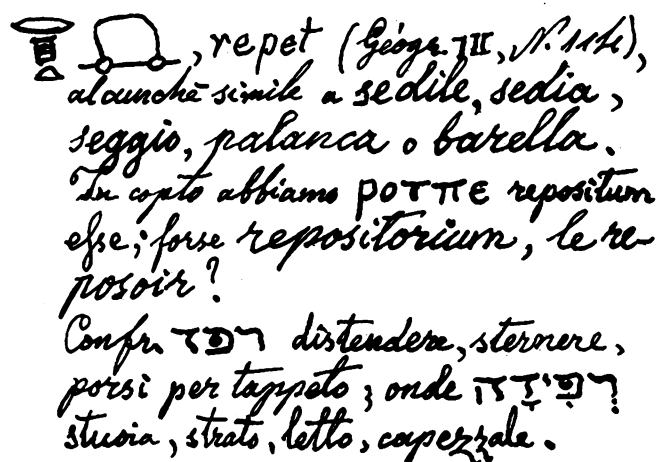 , repet (Géogr. II, N. 114),
alcunchè simile a sedile, sedia,
seggio, palanca o barella.
In copto abbiamo ⲣⲟⲧⲡⲉ repositum
esse; forse repositorium, le re-
posoir?
Confr. רפד distendere, sternere,
porsi per tappeto; onde רְפִידָה
stuoia, strato, letto, capezzale.